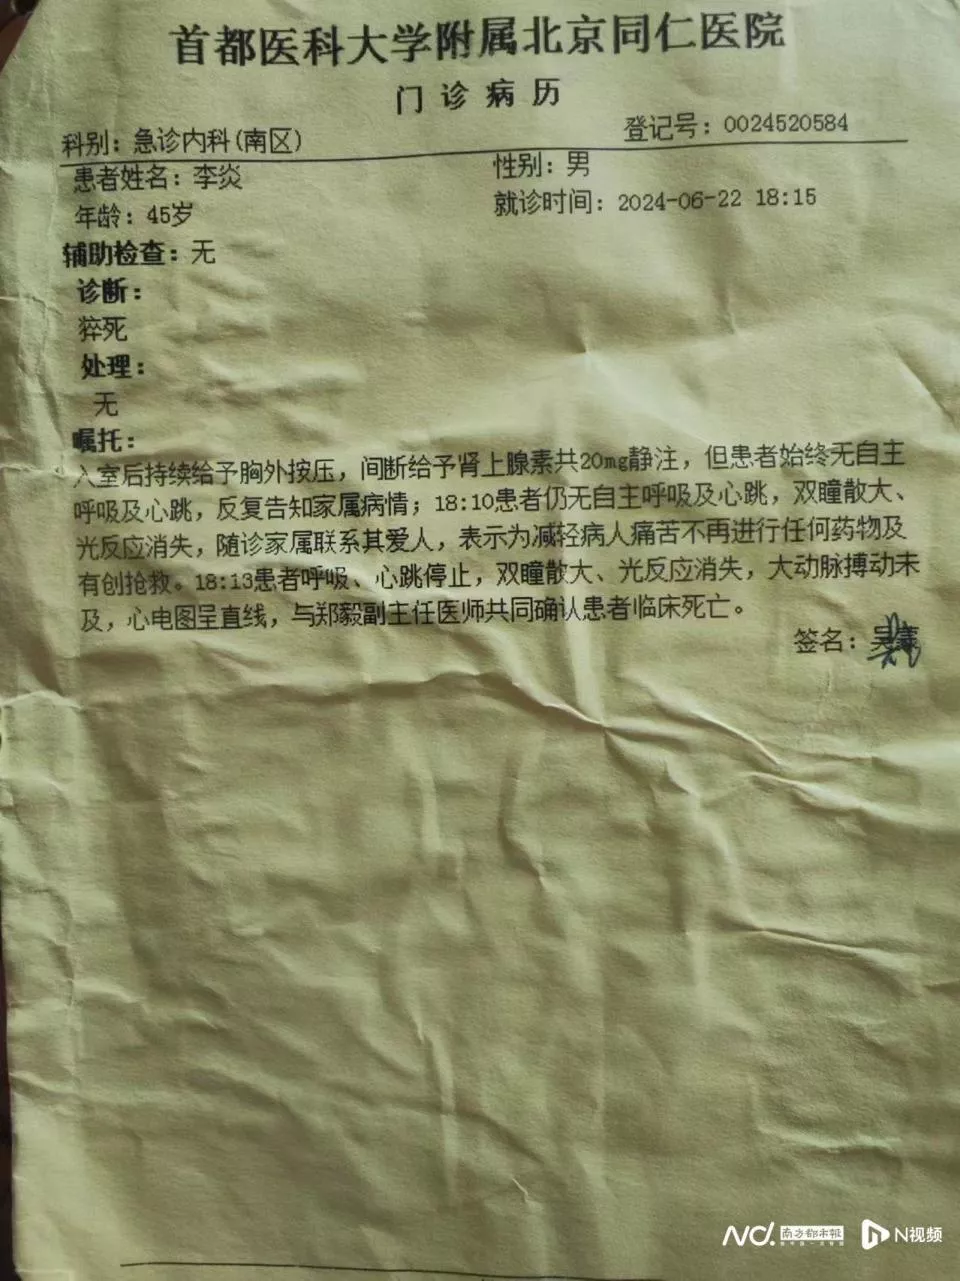 首都医科大学附属北京同仁医院
门诊病历
科别：急诊内科(南区)
登记号：0024520584
患者姓名：李炎
性别：男
年龄：45岁
就诊时间：2024-06-22 18:15
辅助检查：无
诊断：
猝死
处理：
无
嘱托：
入室后持续给予胸外按压，间断给予肾上腺素共20mg静注，但患者始终无自主
呼吸及心跳，反复告知家属病情；18:10患者仍无自主呼吸及心跳，双瞳散大、
光反应消失，随诊家属联系其爱人，表示为减轻病人痛苦不再进行任何药物及
有创抢救。18:13患者呼吸、心跳停止，双瞳散大、光反应消失，大动脉搏动未
及，心电图呈直线，与郑毅副主任医师共同确认患者临床死亡。
签名：吴
南方都市报
N视频